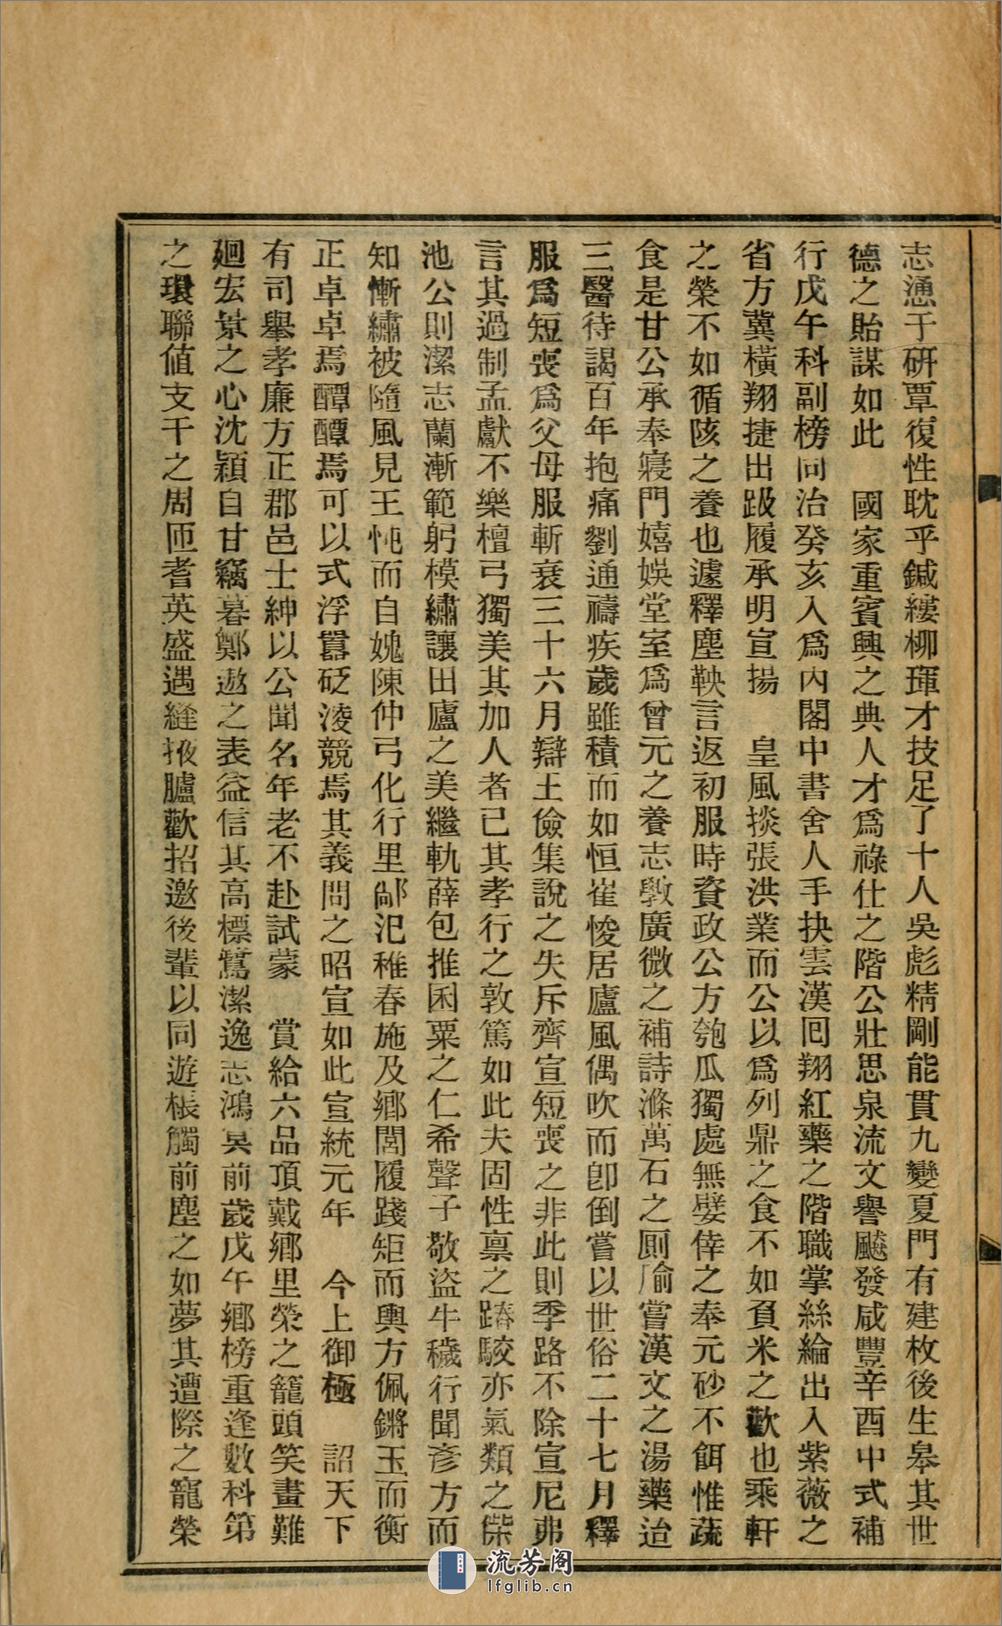 志憑于研覃復性耽乎鍼縷柳琿才技足了十人吳彪精剛能貫九變夏門有建枚後生皋其世
德之貽謀如此　國家重賓興之典人才爲祿仕之階公壯思泉流文譽飈發咸豐辛酉中式補
行戊午科副榜同治癸亥入爲內閣中書舍人手抉雲漢囘翔紅藥之階職掌絲綸出入紫薇之
省方冀橫翔捷出趿履承明宣揚　皇風掞張洪業而公以爲列鼎之食不如負米之歡也乘軒
之榮不如循陔之養也遽釋塵鞅言返初服時資政公方匏瓜獨處無嬖倖之奉元砂不餌惟蔬
食是甘公承奉寢門嬉娛堂室爲曾元之養志斆廣微之補詩滌萬石之厠牏嘗漢文之湯藥迨
三醫待謁百年抱痛劉通禱疾歲雖積而如恒崔悛居廬風偶吹而卽倒嘗以世俗二十七月釋
服爲短喪爲父母服斬衰三十六月辯王儉集說之失斥齊宣短喪之非此則季路不除宣尼弗
言其過制孟獻不樂檀弓獨美其加人者已其孝行之敦篤如此夫固性禀之踳駮亦氣類之偨
池公則潔志蘭漸範躬模繡讓田廬之美繼軌薛包推困粟之仁希聲子敬盜牛穢行聞彥方而
知慚繡被隨風見王忳而自媿陳仲弓化行里鄗汜稚春施及鄉閭履踐矩而輿方佩鏘玉而衡
正卓卓焉醰醰焉可以式浮囂砭淩競焉其義問之昭宣如此宣統元年　今上御極　詔天下
有司舉孝廉方正郡邑士紳以公聞名年老不赴試蒙　賞給六品頂戴鄉里榮之籠頭笑畫難
廻宏景之心沈潁自甘竊慕鄭遨之表益信其高標鷺潔逸志鴻冥前歲戊午鄉榜重逢數科第
之瓌聯值支干之周匝耆英盛遇縫掖臚歡招邀後輩以同遊棖觸前塵之如夢其遭際之寵榮
流芳阁
lfglib.cn